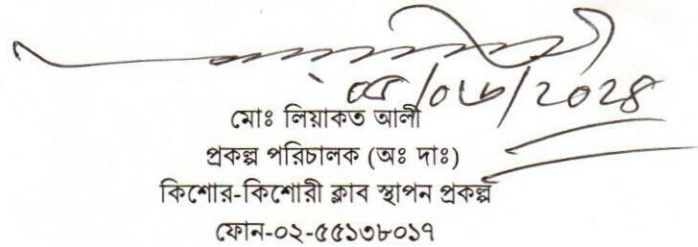 ০৫/০৬/2024
মোঃ লিয়াকত আলী
প্রকল্প পরিচালক (অঃ দাঃ)
কিশোর-কিশোরী ক্লাব স্থাপন প্রকল্প
ফোন-০২-৫৫১৩৮০১৭